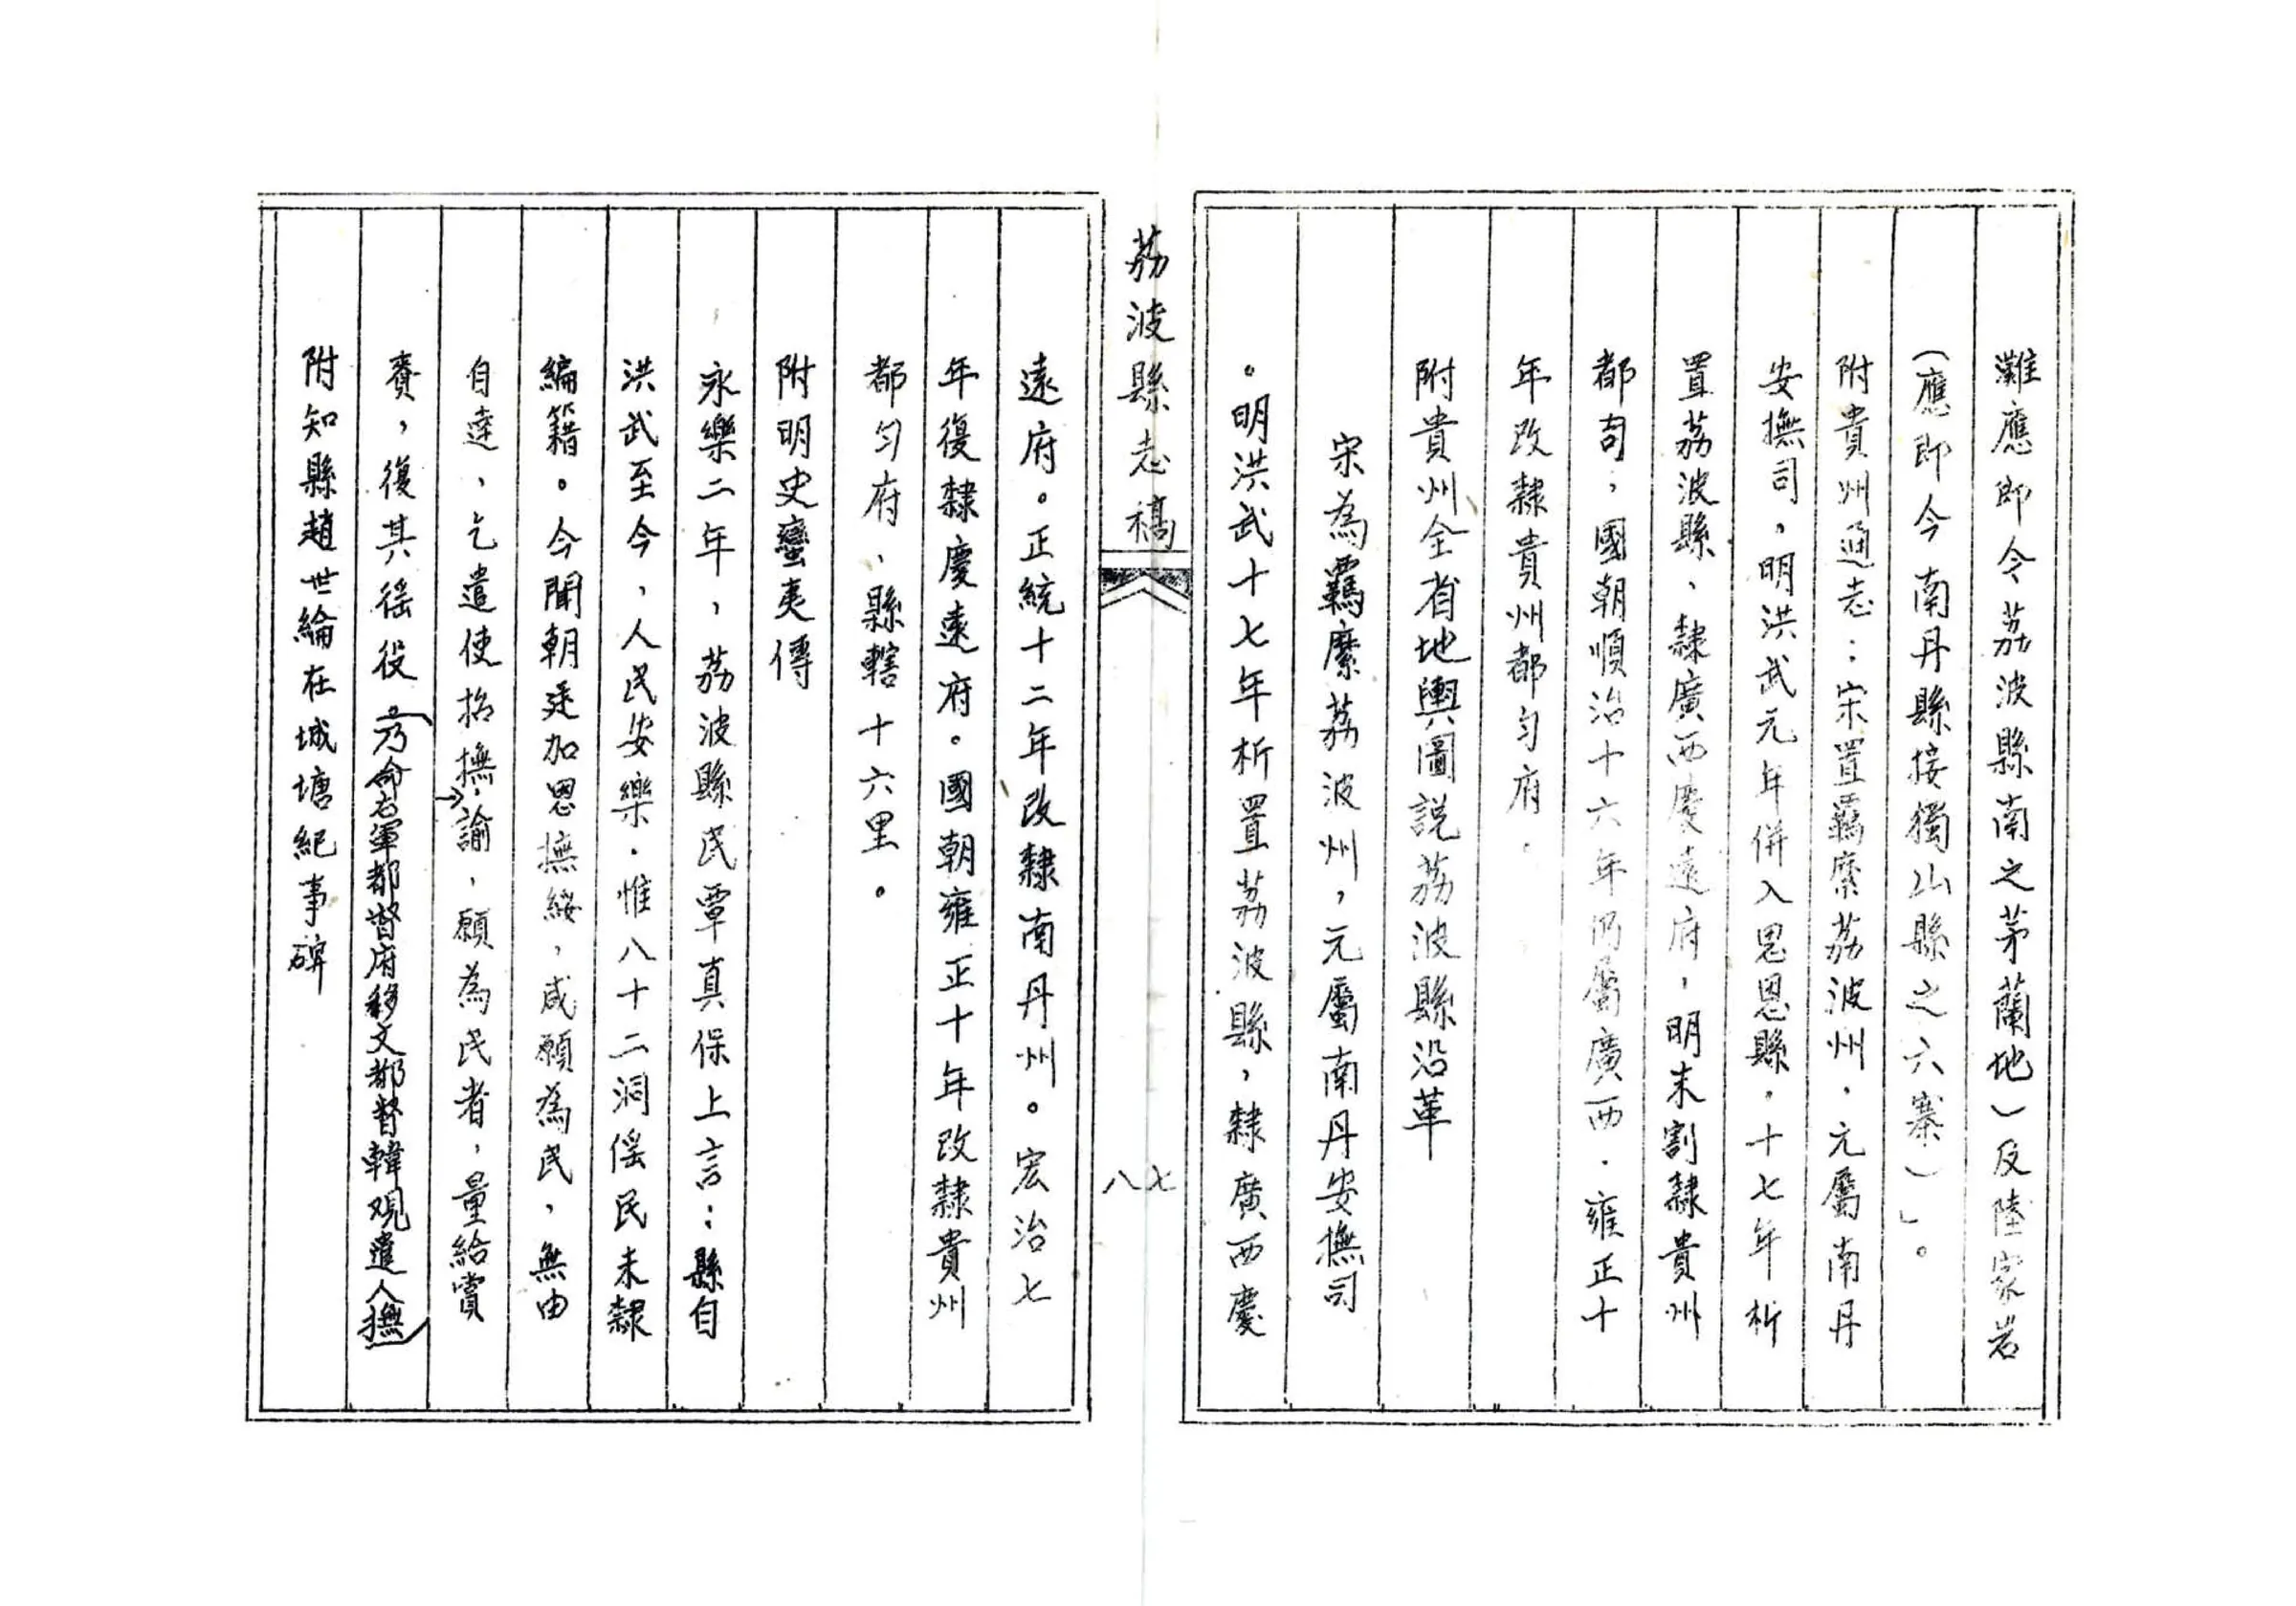 灘應即今荔波縣南之茅蘭地)反陸家岩
(應即今南丹縣接獨山縣之六寨)」。
附貴州通志:宋置羈縻荔波州,元屬南丹
安撫司,明洪武元年併入思恩縣,十七年析
置荔波縣、隸廣西慶遠府,明末割隸貴州
都司,國朝順治十六年仍屬廣西.雍正十
年改隸貴州都勻府.
附貴州全省地輿圖說荔波縣沿革
宋為羈縻荔波州,元屬南丹安撫司
。明洪武十七年析置荔波縣,隸廣西慶
荔波縣志稿
八七
遠府。正統十二年改隸南丹州。宏治七
年復隸慶遠府。國朝雍正十年改隸貴州
都勻府、縣轄十六里。
附明史蠻夷傳
永樂二年,荔波縣民覃真保上言:縣自
洪武至今,人民安樂.惟八十二洞傜民未隸
編籍。今聞朝廷加恩撫綏,咸願為民,無由
自達,乞遣使招撫,諭,願為民者,量給賞
賚,復其徭役。乃命右軍都督府移文都督韓观遣人撫
附知縣趙世綸在城塘紀事碑